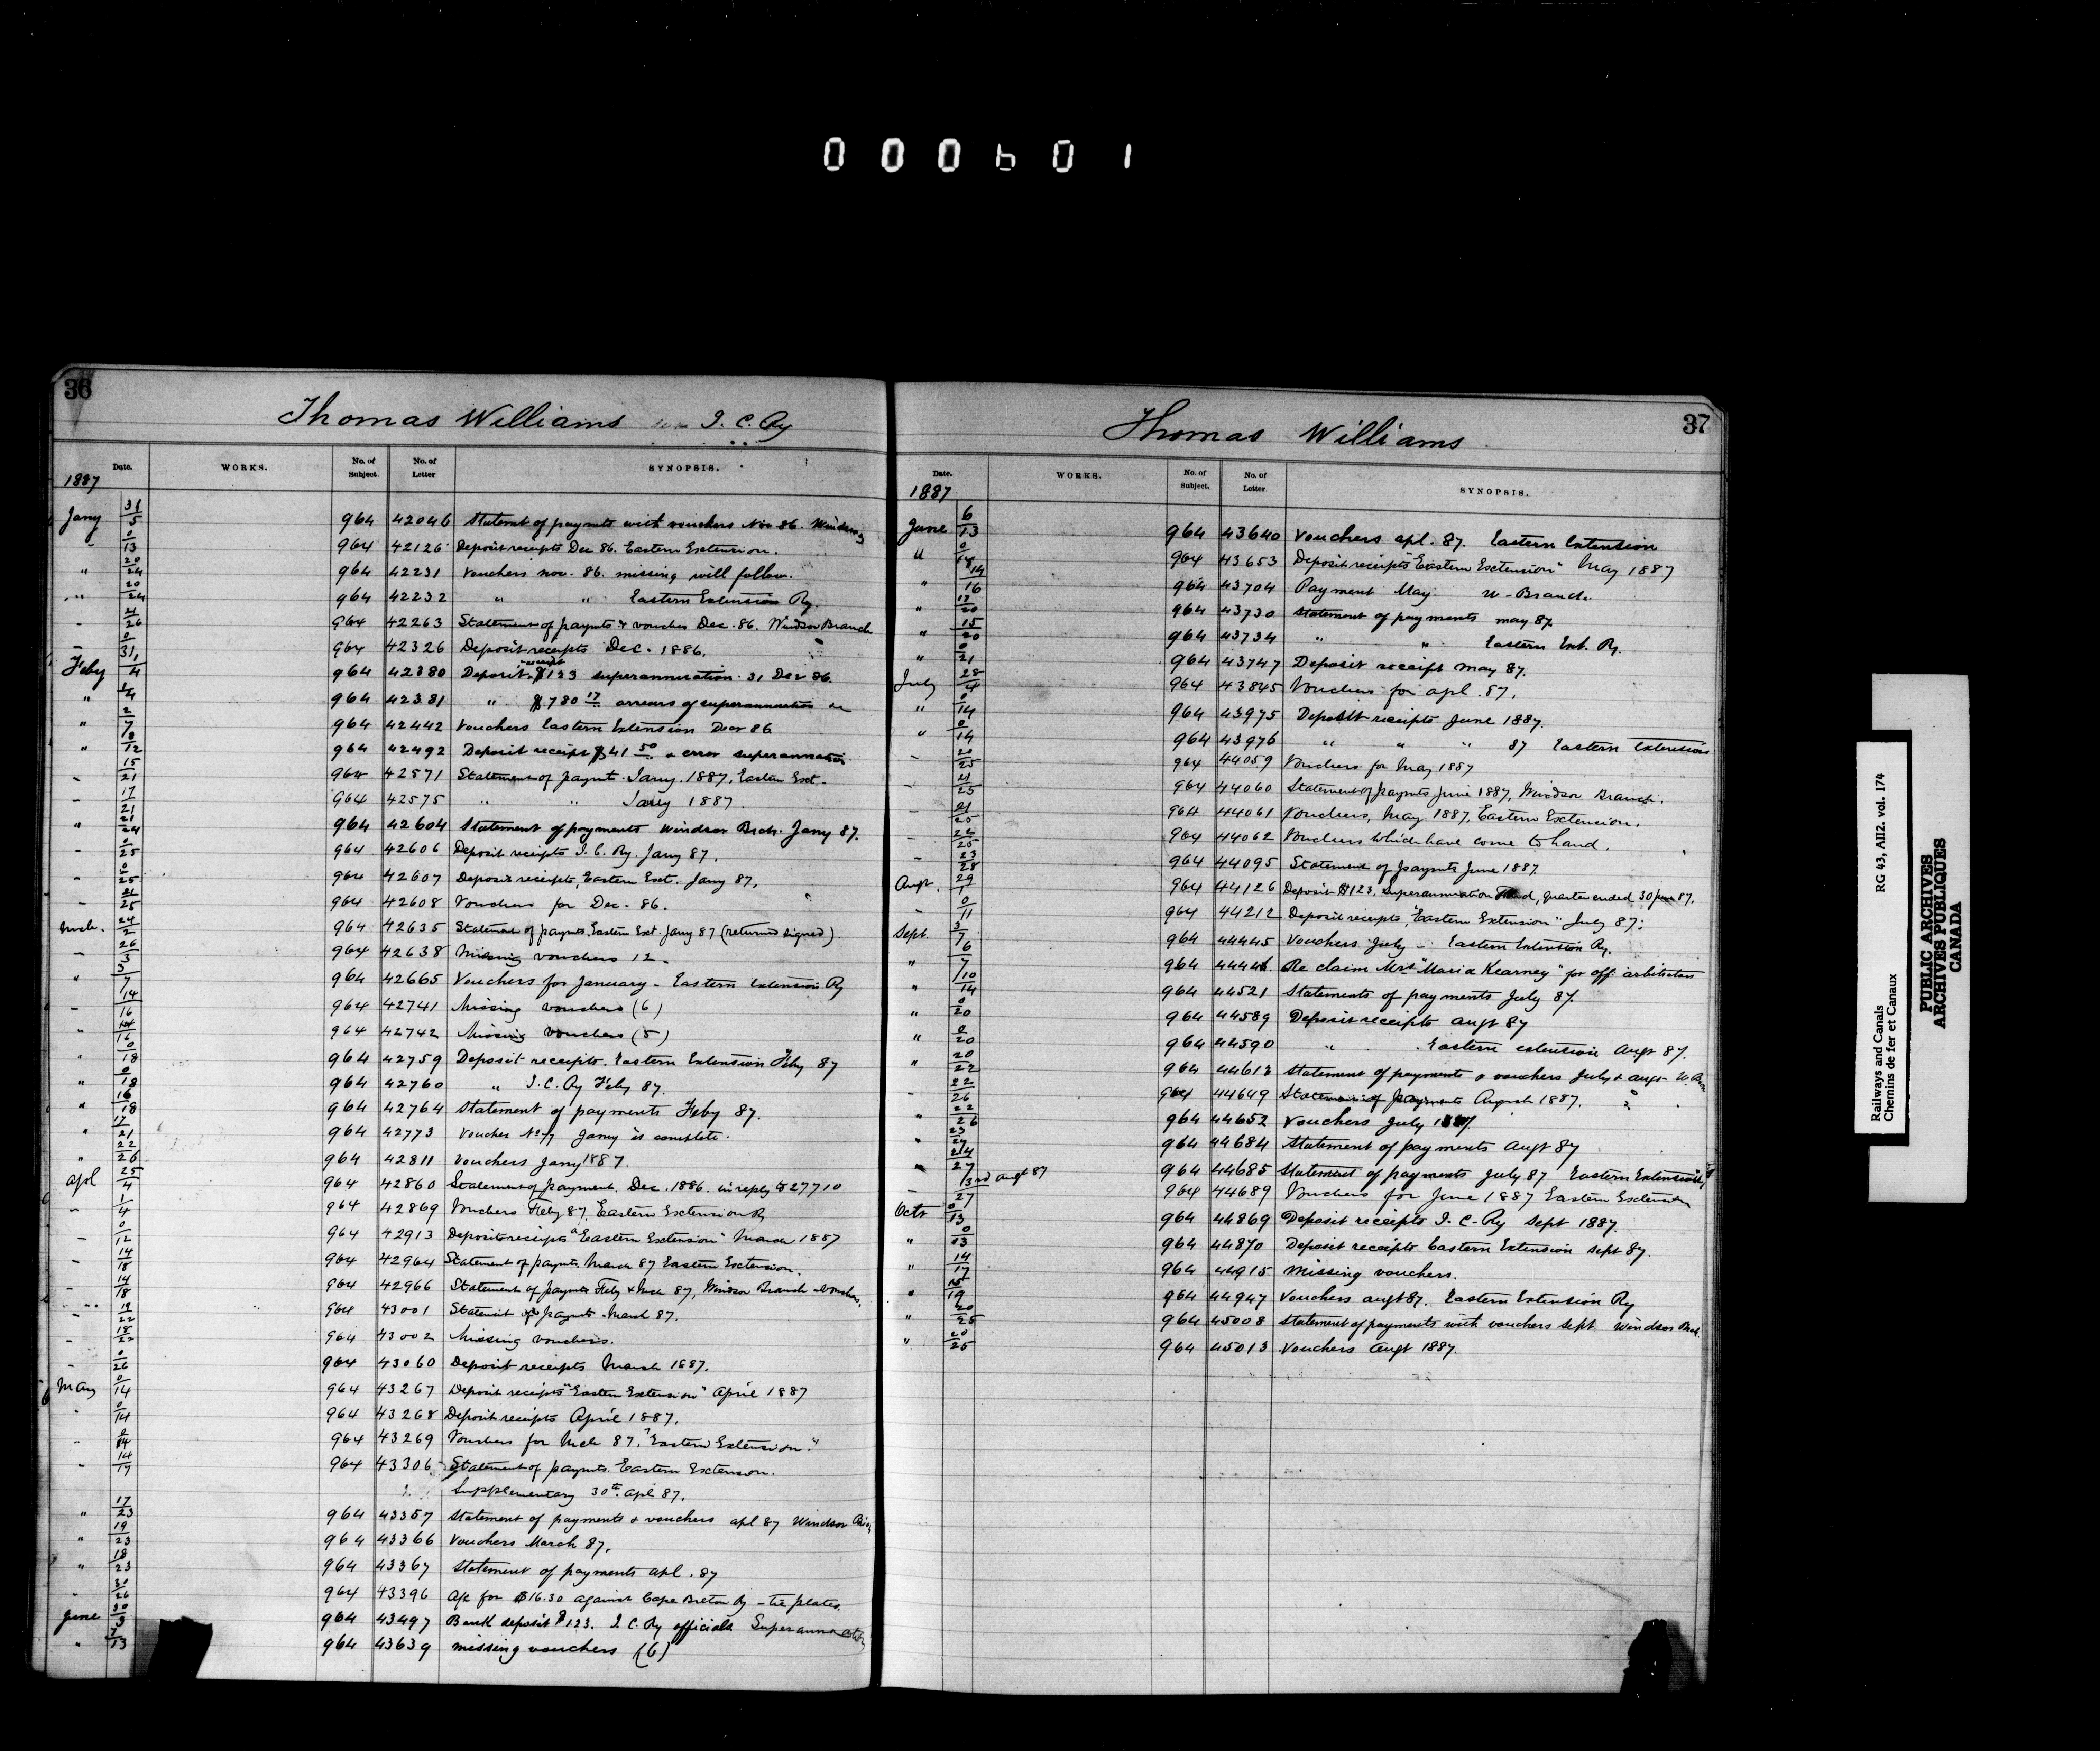 000601
36
Thomas Williams I. C. Ry
Date. WORKS. No. of Subject. No. of Letter SYNOPSIS.
1887
Jany 31/5 964 42046 Statemt of paymts with vouchers Nov 86. Windsor
" 0/13 964 42126 Deposit receipts Dec 86. Eastern Extension.
" 20/24 964 42231 Vouchers nov. 86. missing will follow.
" 20/24 964 42232 " " Eastern Extension Ry.
" 21/26 964 42263 Statement of paymts & vouchers Dec. 86. Windsor Branch
" 0/31 964 42326 Deposit receipts Dec. 1886.
Feby 1/4 964 42380 Deposit receipt $123 superannuation 31 Dec 86
" 964 42381 " $780 17 arrears of superannuation
" 2/7 964 42442 Vouchers Eastern Extension Decr 86
" 0/12 964 42492 Deposit receipt $41 50 error superannuation
- 15/21 964 42571 Statement of paymt. Jany. 1887. Eastern Ext-
- 17/21 964 42575 " " Jany 1887.
" 21/24 964 42604 Statement of payments Windsor Brch. Jany 87.
- 0/25 964 42606 Deposit receipts I. C. Ry. Jany 87.
- 0/25 964 42607 Deposit receipts, Eastern Ext. Jany 87.
- 21/25 964 42608 Vouchers for Dec. 86.
Mch. 24/2 964 42635 Statement of paymts Eastern Ext. Jany 87 (returned signed)
- 26/3 964 42638 Missing vouchers 12-
" 3/7 964 42665 Vouchers for January - Eastern Extension Ry
- 14/16 964 42741 Missing vouchers (6)
" 14/16 964 42742 Missing vouchers (5)
" 0/18 964 42759 Deposit receipts. Eastern Extension Feby 87
" 0/18 964 42760 " I.C. Ry Feby 87.
" 16/18 964 42764 Statement of payments Feby 87.
" 17/21 964 42773 Voucher No 7 Jany is complete.
" 22/26 964 42811 Vouchers Jany 1887.
apl 25/4 964 42860 Statement of payment. Dec. 1886. in reply to 27710
- 1/4 964 42869 Vouchers Feby 87, Eastern Extension Ry
- 0/12 964 42913 Deposit receipts "Eastern Extension" March 1887
- 14/18 964 42964 Statement of paymts. March 87 Eastern Extension.
- 14/18 964 42966 Statement of paymts Feby & Mch 87, Windsor Branch - vouchers.
- 19/22 964 43001 Statemt of paymts - March 87.
- 18/22 964 43002 Missing vouchers.
- 0/26 964 43060 Deposit receipts March 1887.
May 0/14 964 43267 Deposit receipts "Eastern Extension" April 1887
- 0/14 964 43268 Deposit receipts April 1887.
- 2/14 964 43269 Vouchers for Mch 87. "Eastern Extension."
- 14/17 964 43306 Statement of paymts. Eastern Extension.
Supplementary 30th. apl 87.
" 17/23 964 43357 Statement of payments & vouchers apl 87 Windsor
" 19/23 964 43366 Vouchers March 87.
" 18/23 964 43367 Statement of payments apl. 87
" 964 43396 a/c for $16.30 against Cape Breton Ry - tie plates.
June 30/3 964 43497 Bank deposit $123. I. C. Ry officials Superannuation
" 7/13 964 43639 missing vouchers (6)
37
Thomas Williams
Date. WORKS. No. of Subject. No. of Letter. SYNOPSIS.
1887
June 6/13 964 43640 Vouchers apl. 87. Eastern Extension
" 0/14 964 43653 Deposit receipts "Eastern Extension" May 1887
" 14/16 964 43704 Payment May W-Branch.
" 17/20 964 43730 Statement of payments may 87
" 15/20 964 43734 " " Eastern Ext. Ry.
" 0/21 964 43747 Deposit receipt may 87.
July 28/4 964 43845 Vouchers for apl. 87.
" 0/14 964 43975 Deposit receipts June 1887.
" 0/14 964 43976 " " " 87 Eastern Extension
- 20/25 964 44059 Vouchers for May 1887
- 21/25 964 44060 Statement of paymts June 1887, Windsor Branch.
- 21/25 964 44061 Vouchers, May 1887, Eastern Extension.
- 22/25 964 44062 Vouchers which have come to hand.
- 23/28 964 44095 Statement of paymts June 1887.
Augt. 29/1 964 44126 Deposit $123, Superannuation Fund, quarter ended 30 June 87.
- 0/11 964 44212 Deposit receipts, "Eastern Extension" July 87.
Sept. 3/7 964 44445 Vouchers July - Eastern Extension Ry.
" 6/7 964 44446 Re claim Mrs "Maria Kearney" for off. arbitrators
" 10/14 964 44521 Statements of payments July 87.
" 0/20 964 44589 Deposit receipts augt 87
" 0/20 964 44590 " Eastern extension Augt 87.
" 20/22 964 44613 Statement of payments & vouchers July & augt-
- 22/26 964 44649 Statement of payments August 1887.
" 22/26 964 44652 Vouchers July 1887.
" 23/27 964 44684 Statement of payments augt 87
" 24/27 964 44685 Statement of payments July 87 Eastern Extension
- 3rd augt 87/27 964 44689 Vouchers for June 1887 Eastern Extension
Octr 0/13 964 44869 Deposit receipts I. C. Ry Sept 1887.
" 0/13 964 44870 Deposit receipts Eastern Extension sept 87.
" 14/17 964 44915 missing vouchers.
" 15/19 964 44947 Vouchers augt 87. Eastern Extension Ry
" 20/25 964 45008 Statement of payments with vouchers sept Windsor Brch.
" 20/25 964 45013 Vouchers augt 1887.
Railways and Canals RG 43, AII2. vol. 174
Chemins de fer et Canaux
PUBLIC ARCHIVES
ARCHIVES PUBLIQUES
CANADA